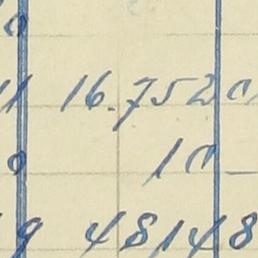 0
11 16.752 0
0 10 —
9 48148